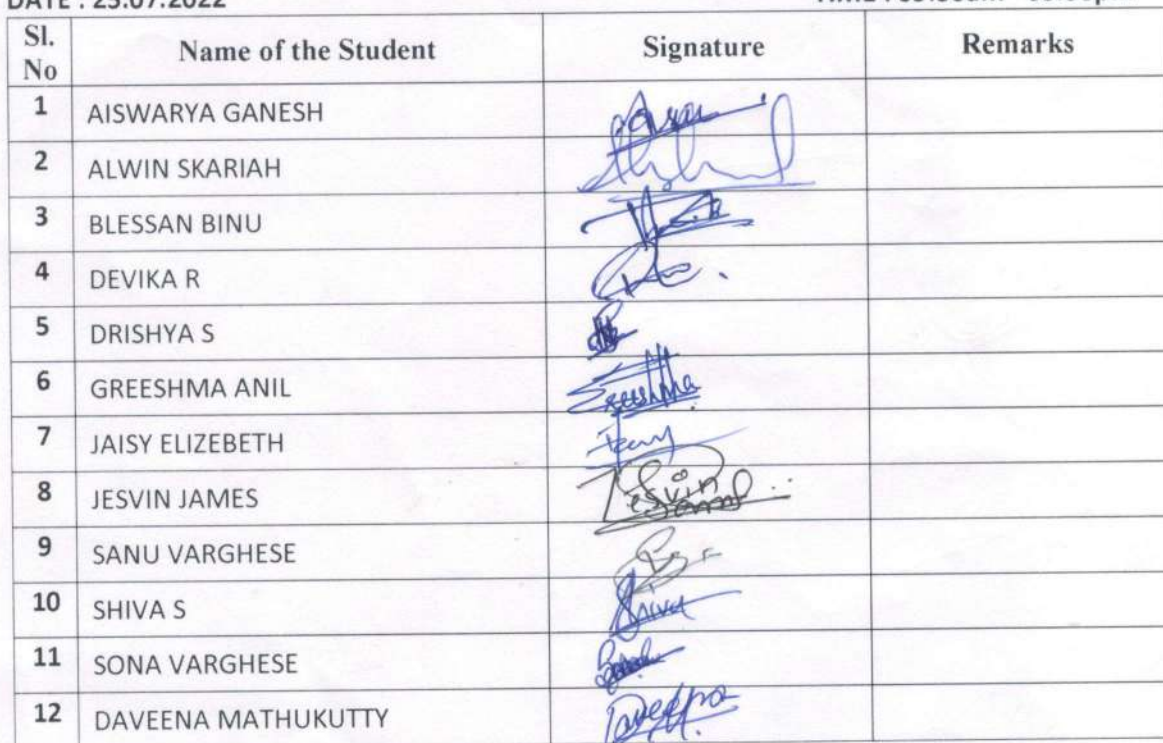 Sl. No Name of the Student Signature Remarks
1 AISWARYA GANESH
2 ALWIN SKARIAH
3 BLESSAN BINU
4 DEVIKA R
5 DRISHYA S
6 GREESHMA ANIL Greeshma
7 JAISY ELIZEBETH
8 JESVIN JAMES Jesvin James
9 SANU VARGHESE
10 SHIVA S Shiva
11 SONA VARGHESE
12 DAVEENA MATHUKUTTY Daveena